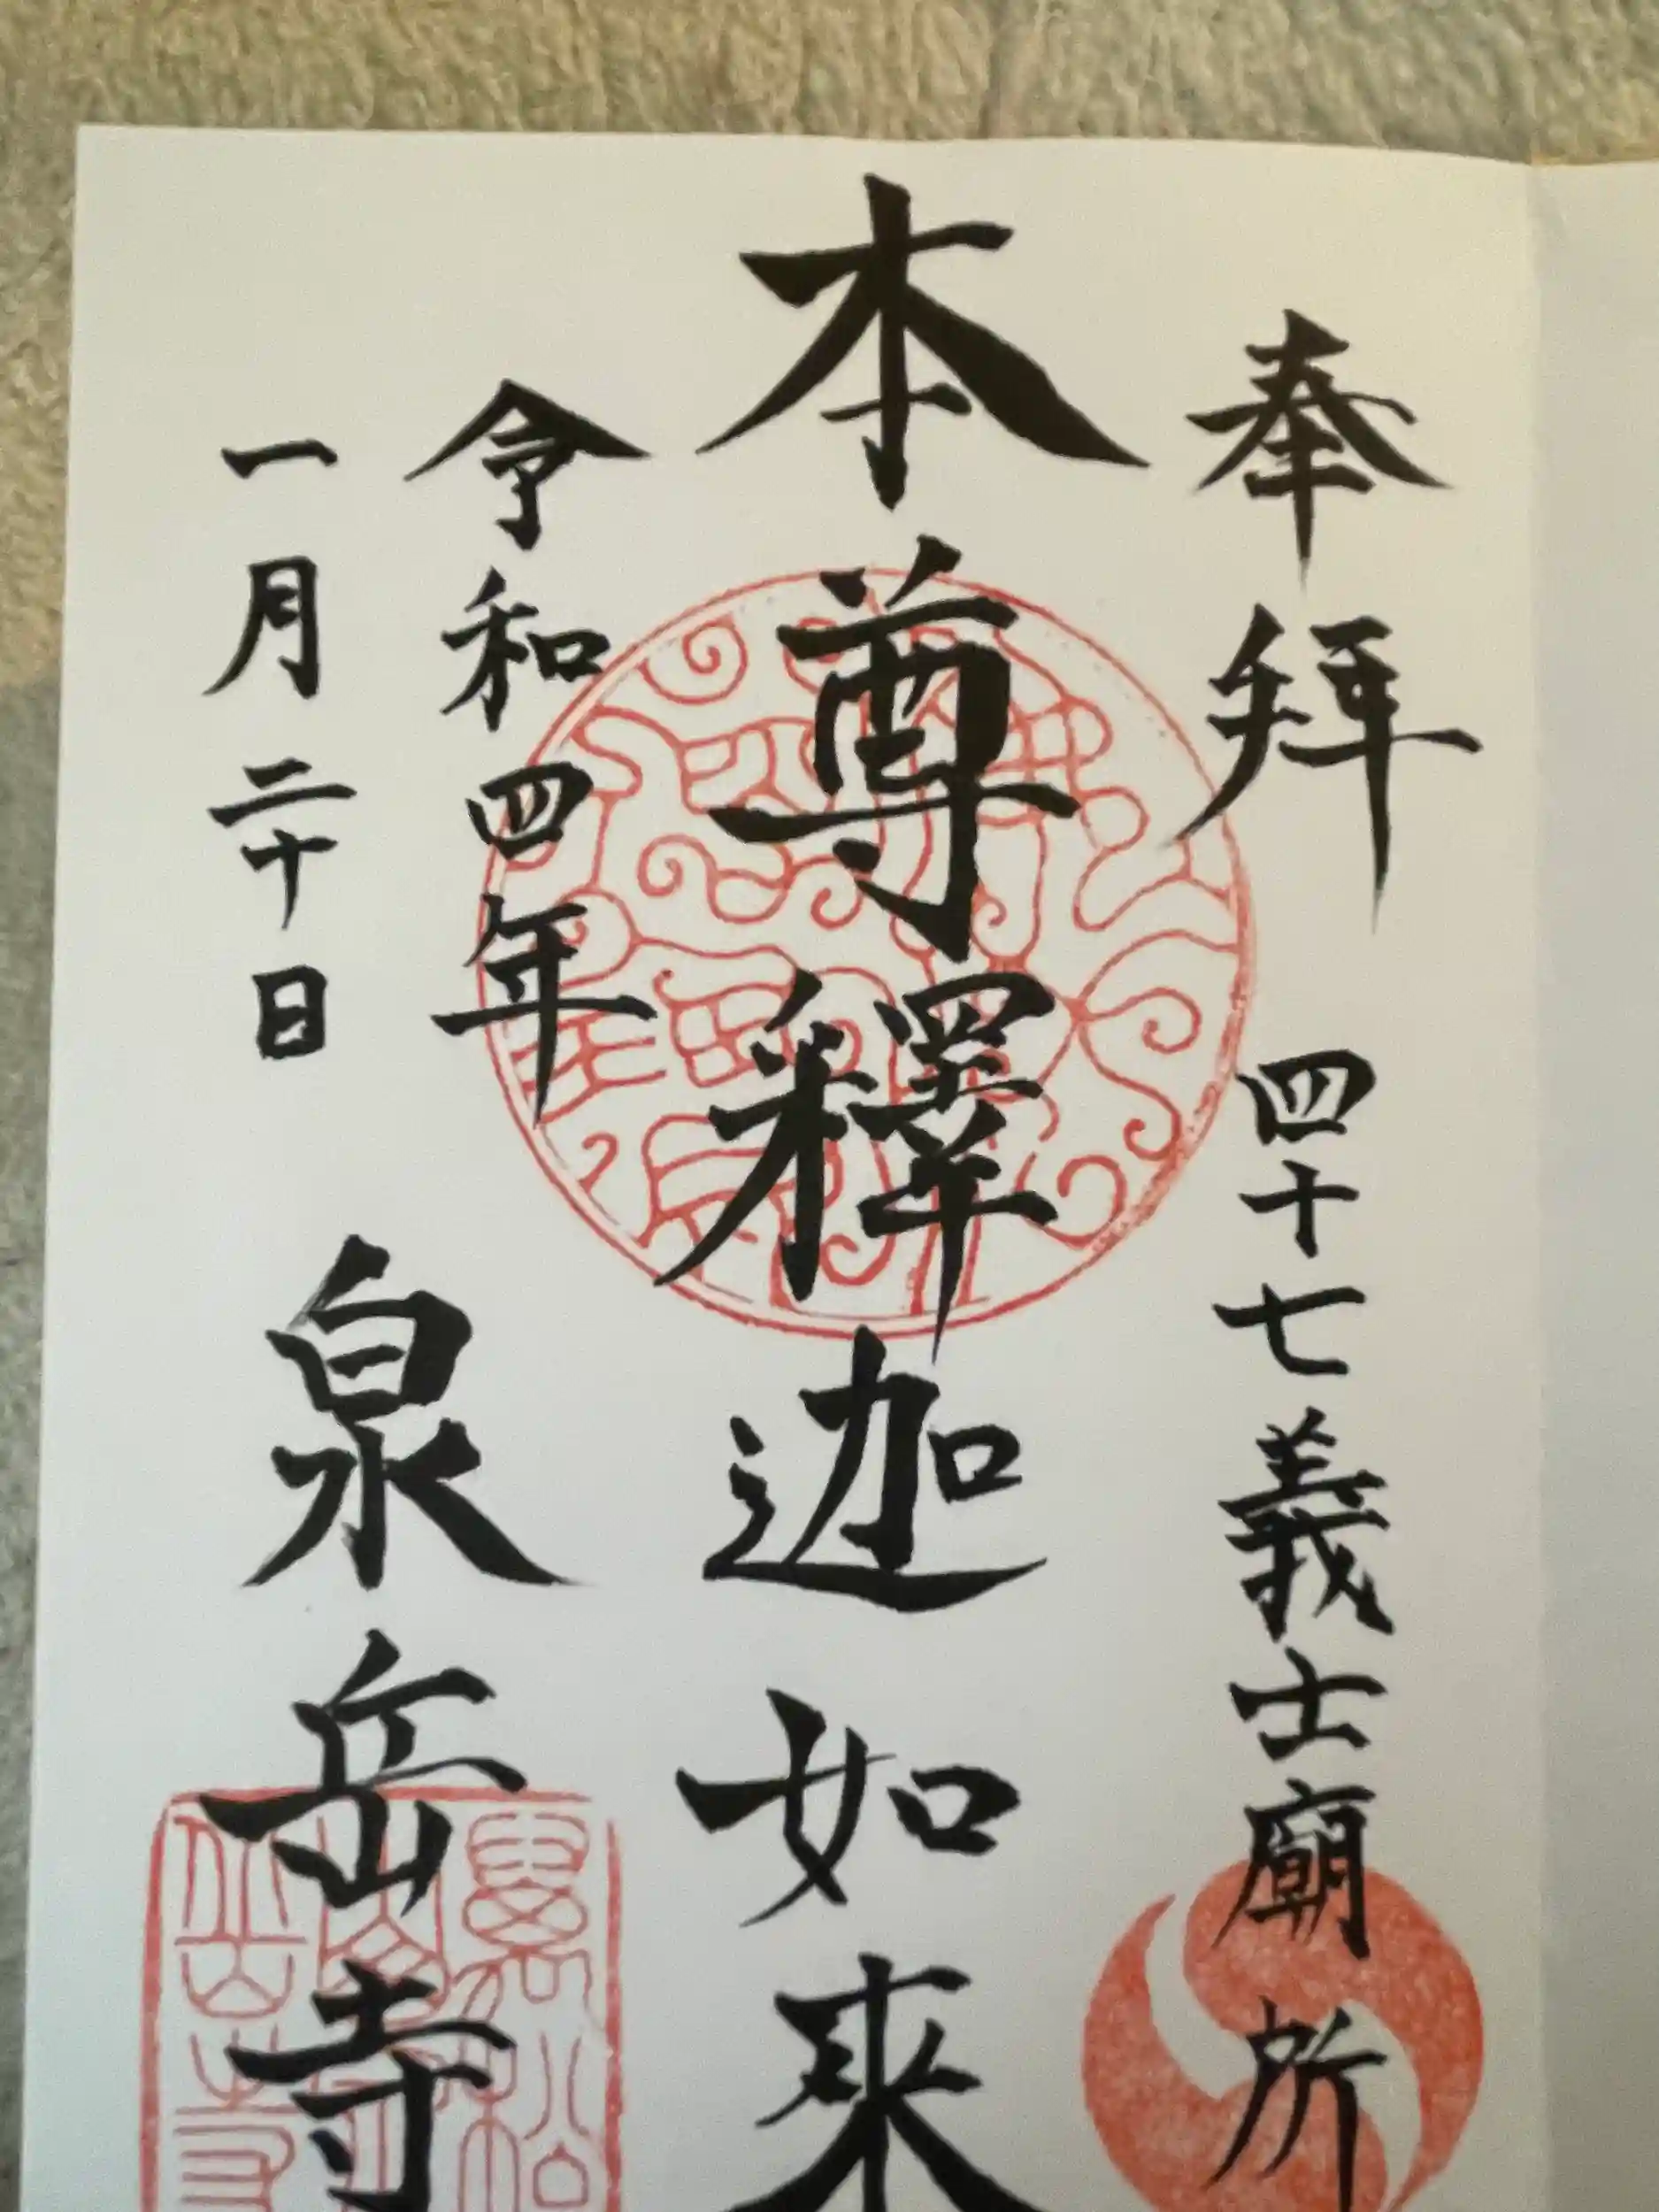 奉拜 四十七義士廟所
本尊釋迦如来
令和四年
一月二十日 泉岳寺